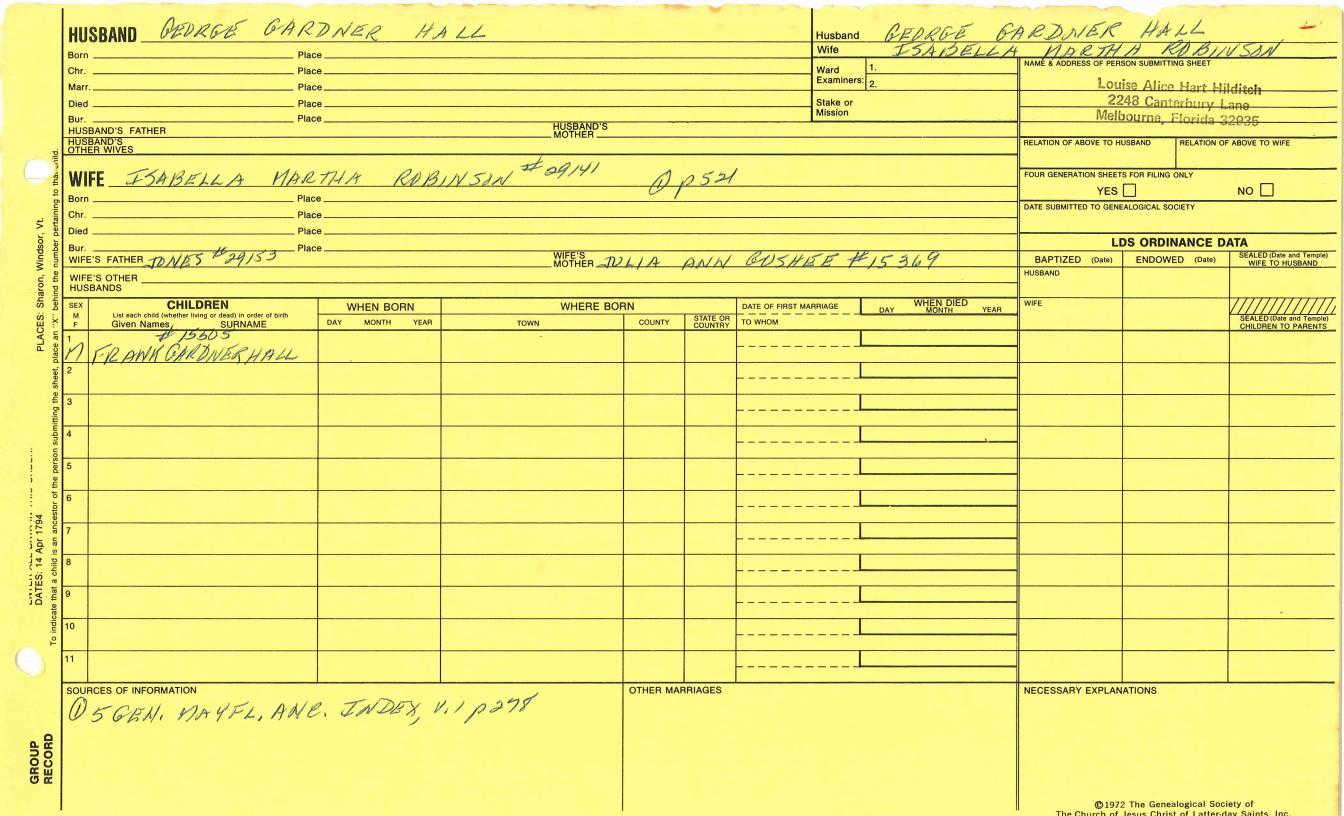 HUSBAND GEORGE GARDNER HALL
Born Place
Chr. Place
Marr. Place
Died Place
Bur. Place
HUSBAND'S FATHER HUSBAND'S MOTHER
HUSBAND'S OTHER WIVES
Husband GEORGE GARDNER HALL
Wife ISABELLA MARTHA ROBINSON
Ward Examiners: 1.
2.
Stake or Mission
NAME & ADDRESS OF PERSON SUBMITTING SHEET
Louise Alice Hart Hilditch
2248 Canterbury Lane
Melbourne, Florida 32935
RELATION OF ABOVE TO HUSBAND RELATION OF ABOVE TO WIFE
FOUR GENERATION SHEETS FOR FILING ONLY
YES NO
DATE SUBMITTED TO GENEALOGICAL SOCIETY
WIFE ISABELLA MARTHA ROBINSON #29141 ① p521
Born Place
Chr. Place
Died Place
Bur. Place
WIFE'S FATHER JONES #29153 WIFE'S MOTHER JULIA ANN GUSHEE #15369
WIFE'S OTHER HUSBANDS
LDS ORDINANCE DATA
BAPTIZED (Date) ENDOWED (Date) SEALED (Date and Temple) WIFE TO HUSBAND
HUSBAND
WIFE
SEALED (Date and Temple) CHILDREN TO PARENTS
SEX M F
CHILDREN
List each child (whether living or dead) in order of birth
Given Names SURNAME
WHEN BORN
DAY MONTH YEAR
WHERE BORN
TOWN COUNTY STATE OR COUNTRY
DATE OF FIRST MARRIAGE
TO WHOM
WHEN DIED
DAY MONTH YEAR
1 # 15605
M FRANK GARDNER HALL
2
3
4
5
6
7
8
9
10
11
SOURCES OF INFORMATION
① 5 GEN. MAYFL. ANC. INDEX, V.1 p298
OTHER MARRIAGES
NECESSARY EXPLANATIONS
©1972 The Genealogical Society of
The Church of Jesus Christ of Latter-day Saints, Inc.
PLACES: Sharon, Windsor, Vt.
DATES: 14 Apr 1794
To indicate that a child is an ancestor of the person submitting the sheet, place an "X" behind the number pertaining to that child.
GROUP
RECORD